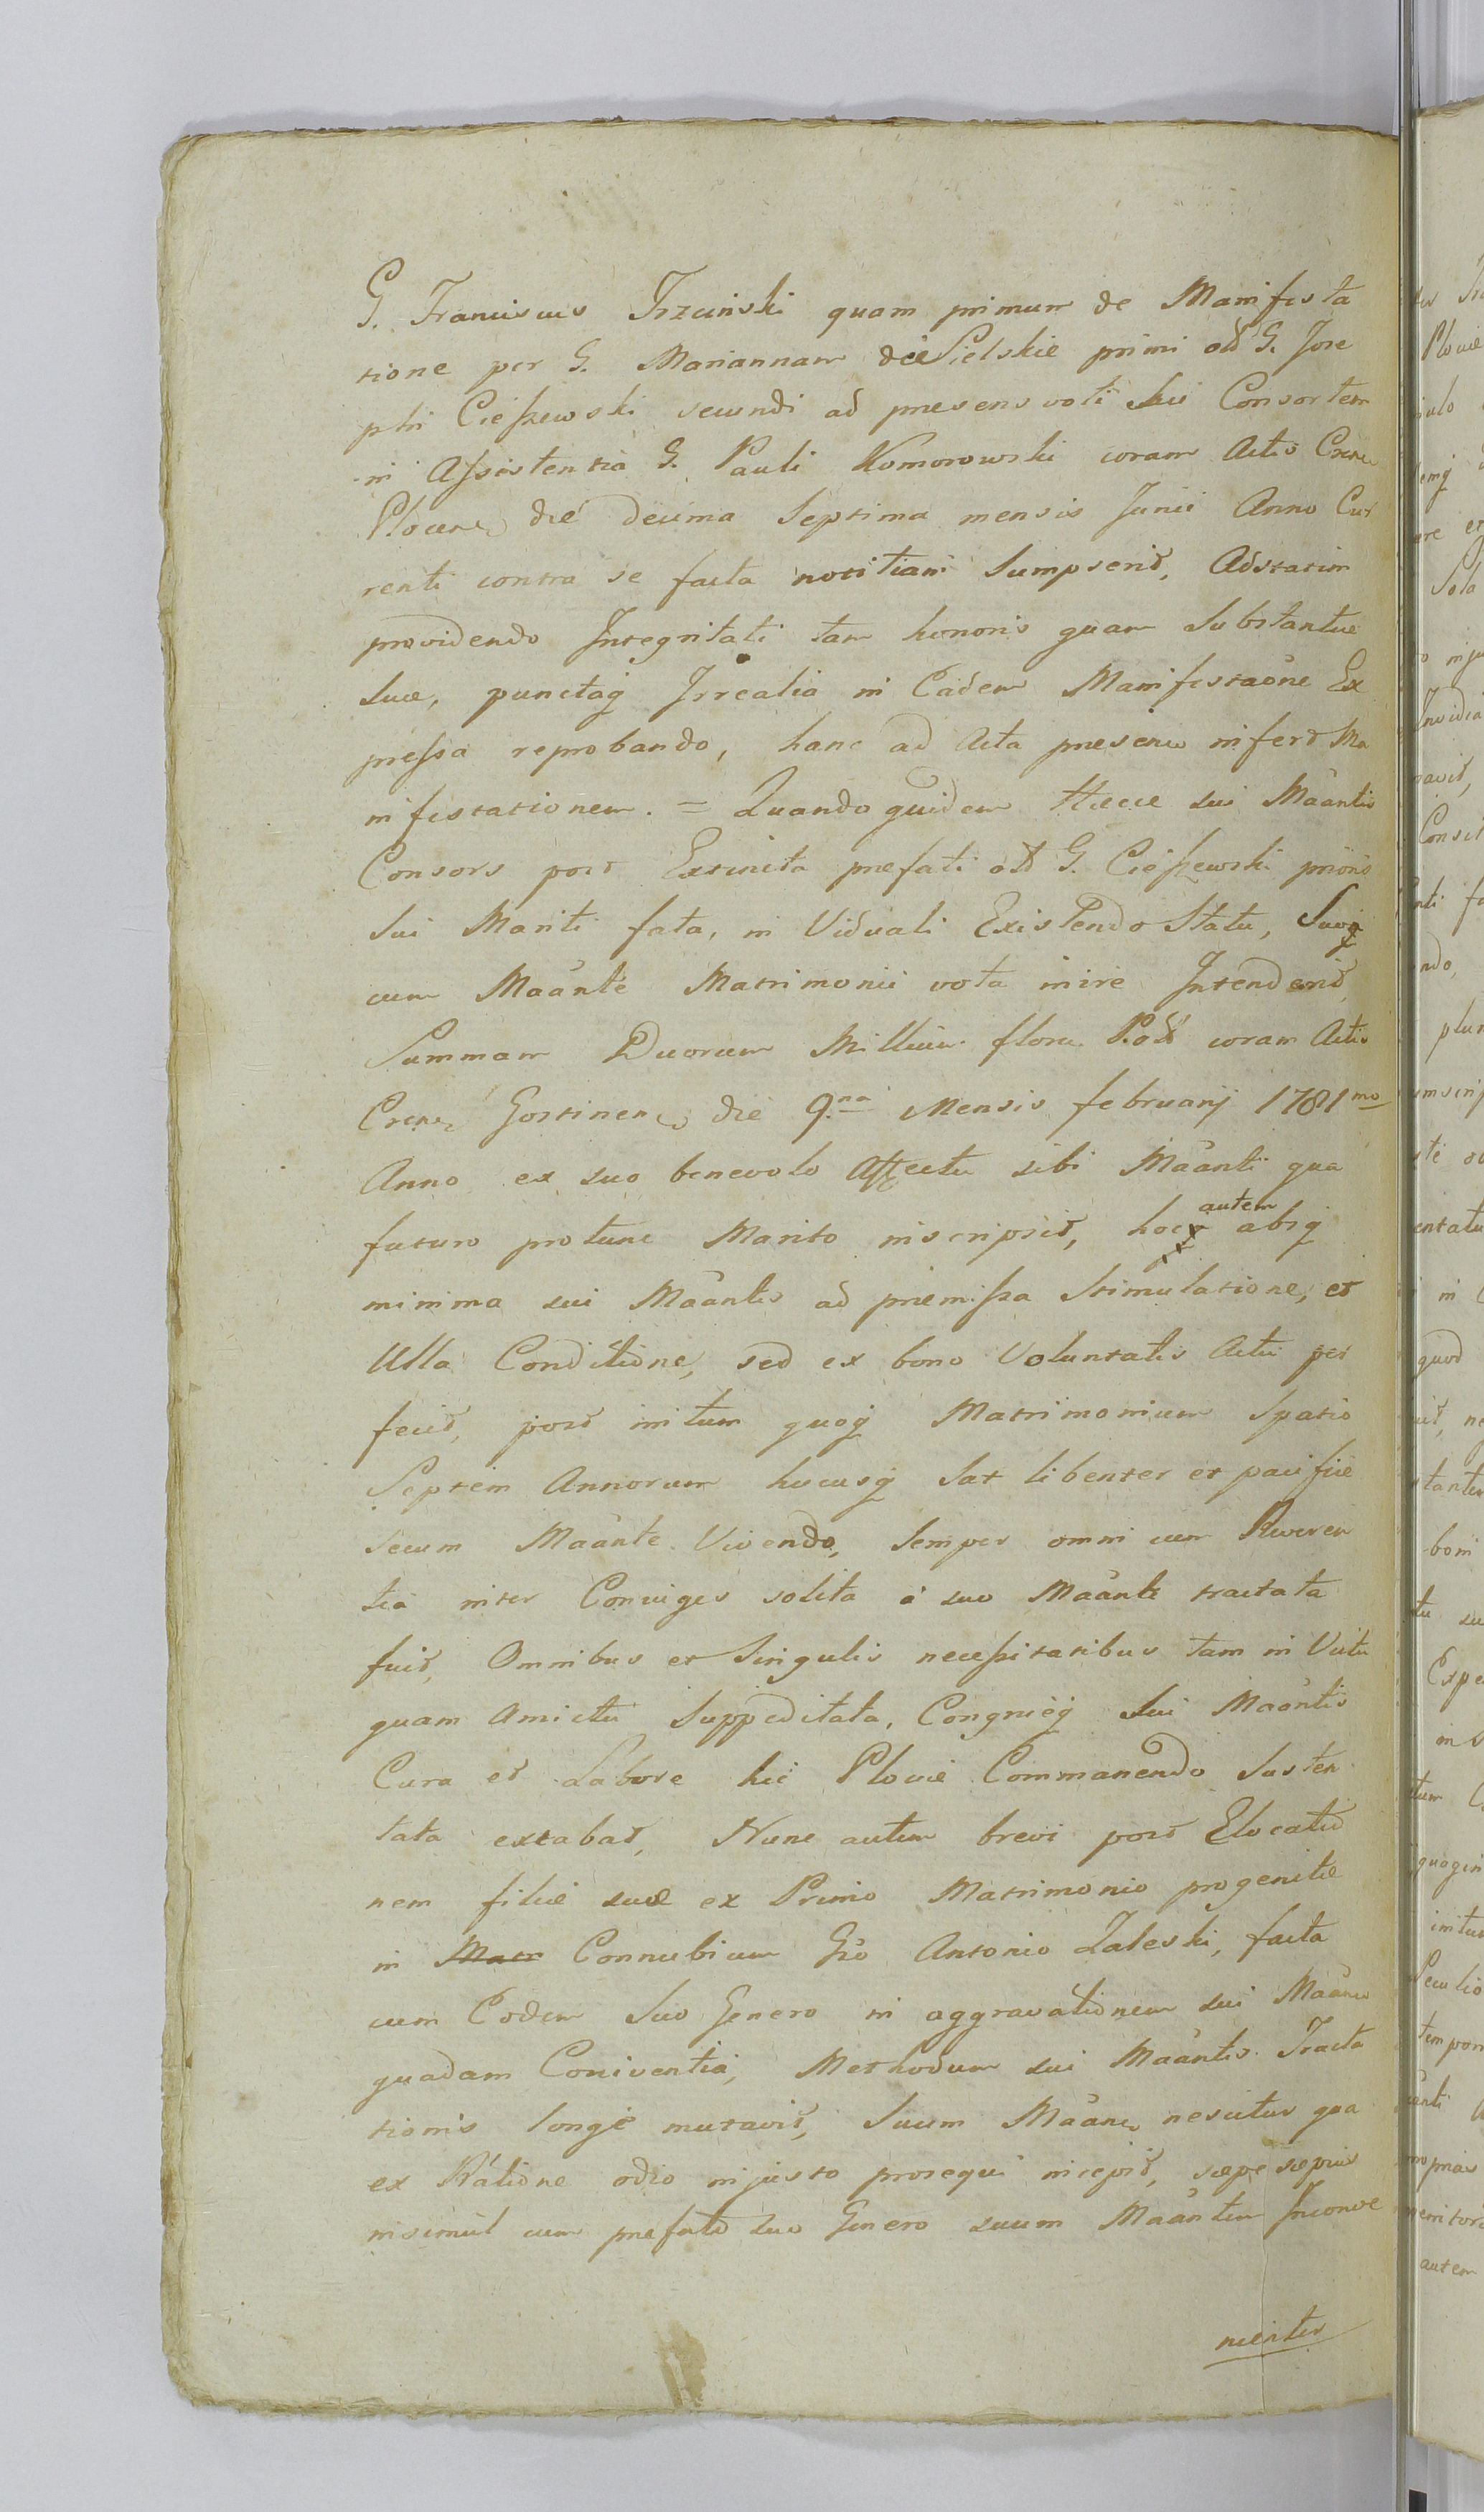 G. Franciscus Trzcinski quam primum de Manifesta
tione per G. Mariannam de Pielskie primi olt G. Jose
phi Cieszewski secundi ad præsens voti sui Consortem
in Assistentia G. Pauli Komorowski coram Actis Cren
Plocen die decima Septima mensis Junii Anno Cur
renti contra se facta notitiam Sumpserit, Adstatim
providendo Integritati tam honoris quam Substantiæ
Suæ, punctaq Irrealia in Eadem Manifestaone Ex
pressa reprobando, hanc ad Acta præsen infert Ma
nifestationem. = Quandoquidem Hæcce sui Maantis
Consors post Extincta præfati olt G. Cieszewski prioris
Sui Mariti fata, in Viduali Existendo Statu, Suoq
cum Maante Matrimonii vota inire Intenderit,
Summam Duorum Millium floren Pol coram Actis
Cren Gostinen die 9na Mensis februarij 1781mo
Anno ex suo benevolo Affectu sibi Maanti qua
futuro protunc Marito inscripsit, hoc autem absq
minima sui Maantis ad præmissa Stimulatione, et
Ulla Conditione, sed ex bono Voluntatis Actu per
fecit, post initum quoq Matrimonium Spatio
Septem Annorum hucusq Sat libenter et pacifice
secum Maante Vivendo, Semper omni cum Reveren
tia inter Coniuges solita a suo Maante tractata
fuit, Omnibus et Singulis necessitatibus tam in Victu
quam Amictu Suppeditata, Congrueq Sui Maantis
Cura et Labore hic Plociæ Commanendo Susten
tata extabat, Nunc autem brevi post Elocatio
nem filiæ suæ ex Primo Matrimonio progenitæ
in Matr Connubium Gso Antonio Zaleski, facta
cum Eodem Suo Genero in aggravationem sui Maan
quadam Coniventia, Methodum sui Maantis Tracta
tionis longe mutavit, Suum Maan nescitur qua
ex Ratione odio injusto prosequi incepit, sæpe sæpius
insimul cum præfato suo Genero suum Maantem Inconve
nienter